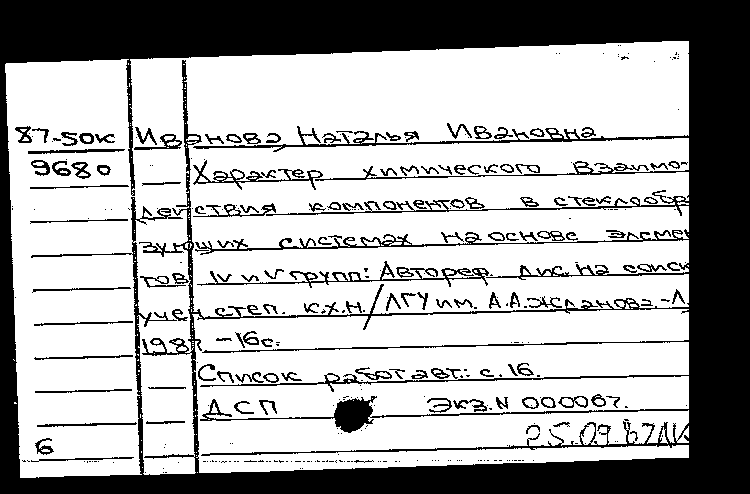 87-50к Иванова, Наталья Ивановна.
9680 Характер химического взаимо-
действия компонентов в стеклообра
зующих системах на основе элемен
тов IV и V групп: Автореф. дис. на соиск
учен. степ. к.х.н./ЛГУ им. А.А.Жданова.-Л.
1987. -16с.
Список работ авт.: с. 16.
ДСП Экз.N 000067.
6 25.09.87ЛК